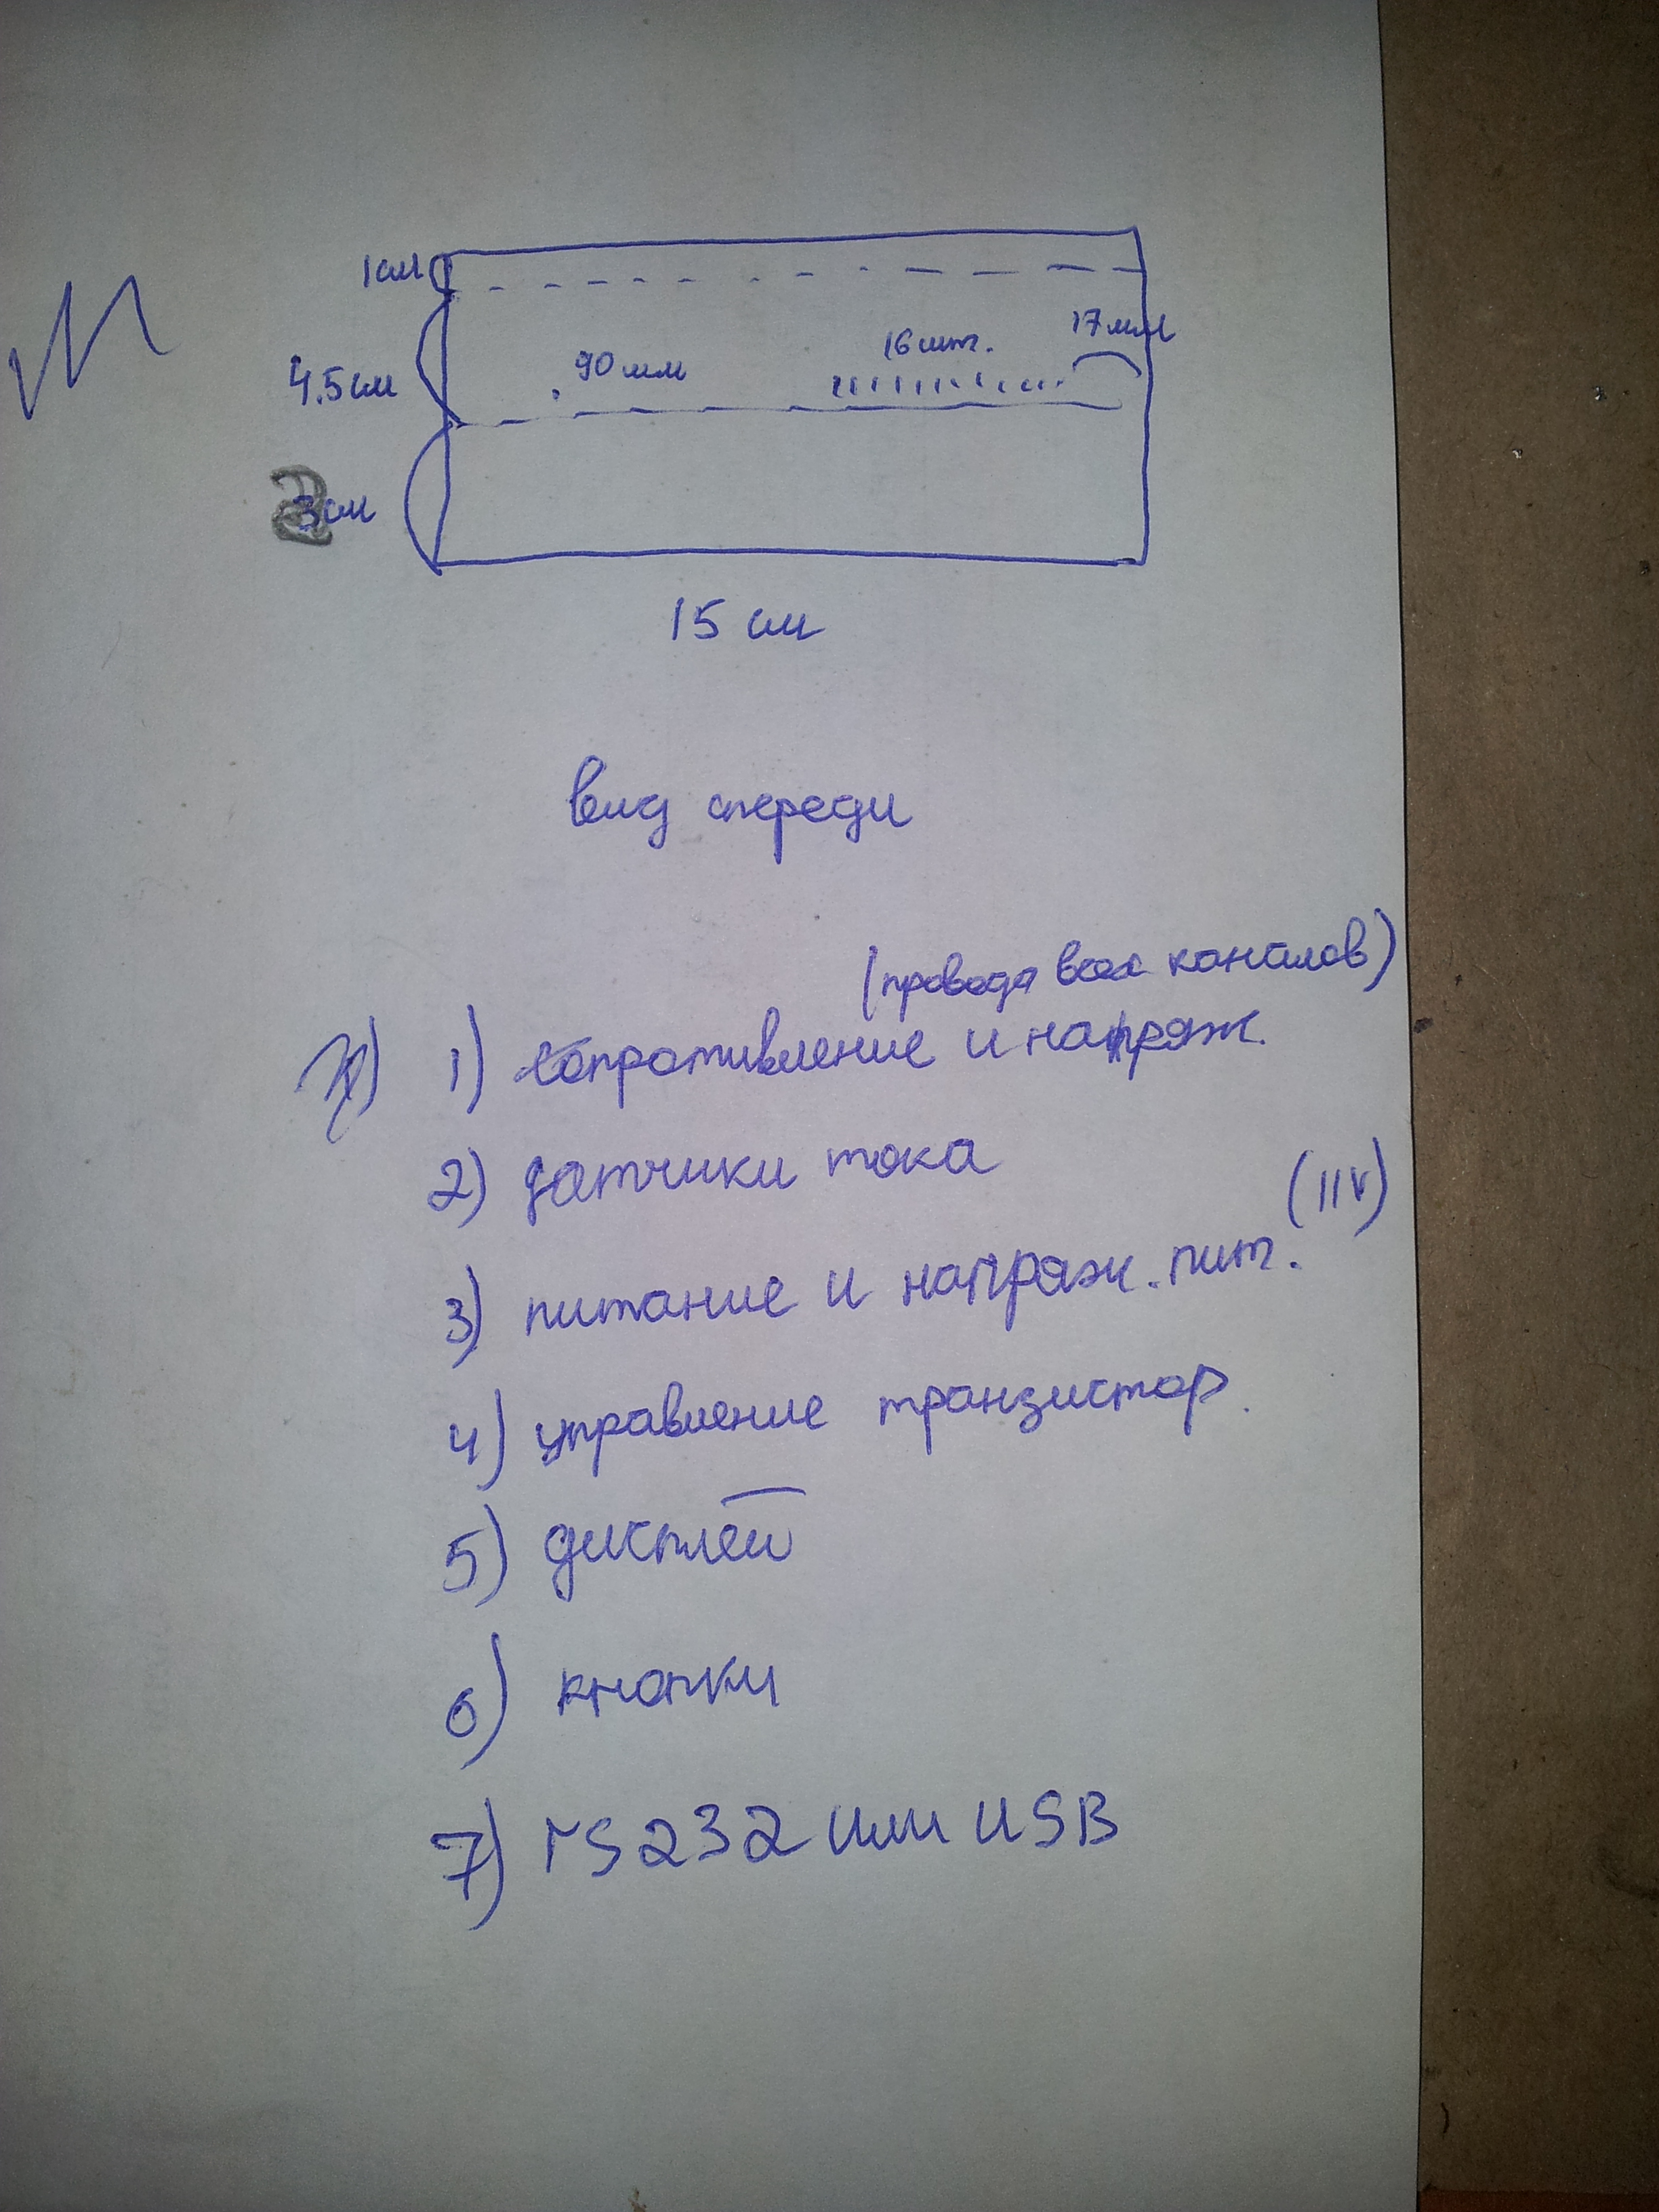 1см
17мм
16шт.
90мм
4.5см
см
15 см
вид спереди
(провода всех каналов)
1) сопротивление и напряж.
2) датчики тока
(11v)
3) питание и напряж. пит.
4) управление транзистор.
5) дисплей
6) кнопки
7) rS232 или USB